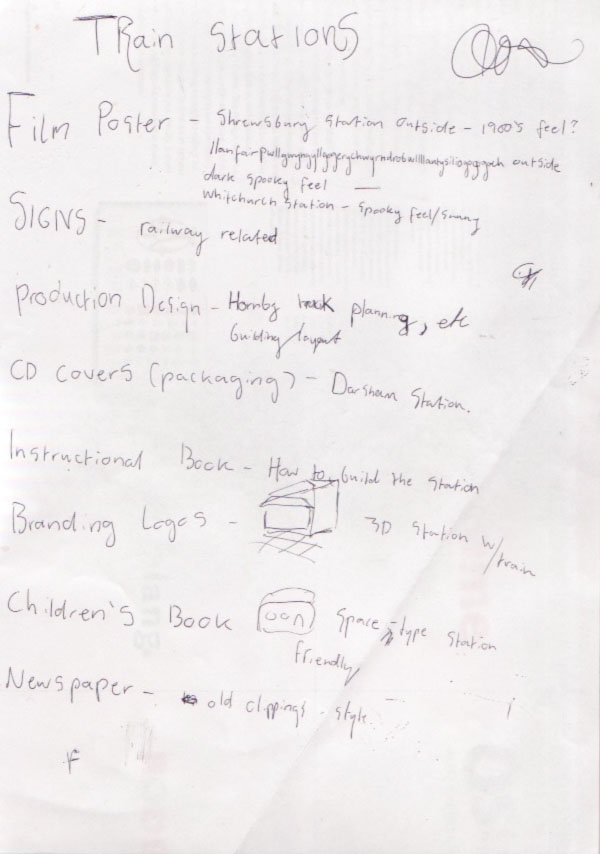 TRain Stations
Film Poster - Shrewsbury Station outside - 1900's feel?
outside
dark spooky feel —
Whitchurch Station - Spooky feel/
SIGNS - railway related
Production Design - Hornby planning, etc
building/layout
CD Covers (packaging) - Darsham Station.
Instructional Book - How to build the station
Branding Logos - 3D Station w/train
Children's Book Space-type Station
friendly
Newspaper - old clippings - style
F